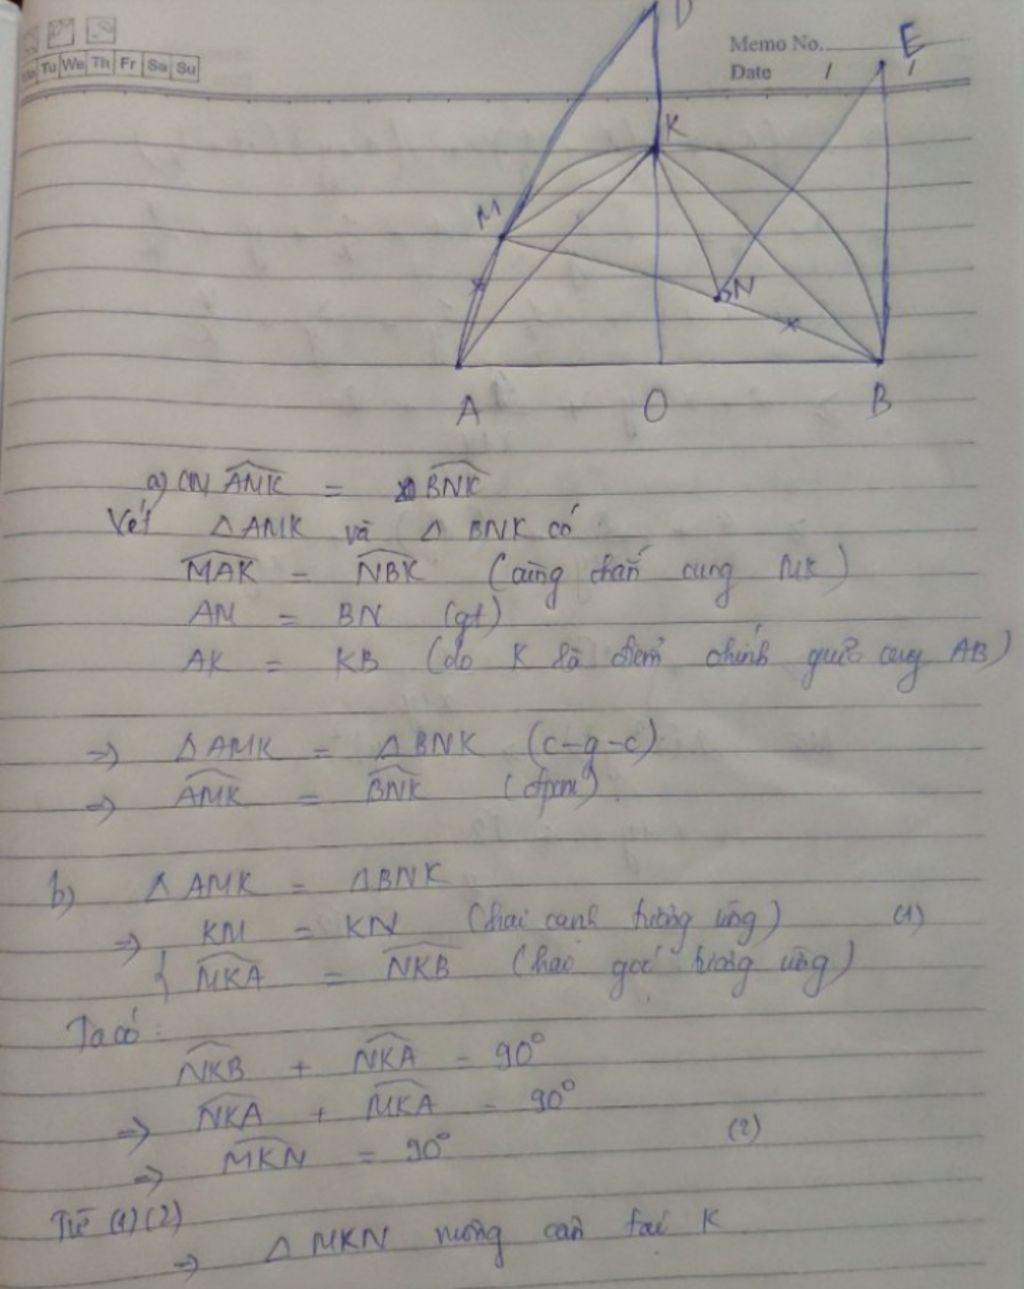 Tu We Th Fr Sa Su
Memo No.
Date / /
D
E
K
M
N
A O B
a) CM AMK = BNK
Xét ΔAMK và Δ BNK có :
MAK = NBK (cùng chắn cung MK)
AM = BN (gt)
AK = KB (do K là điểm chính giữa cung AB)
=> ΔAMK = ΔBNK (c-g-c)
=> AMK = BNK (đpcm)
b) ΔAMK = ΔBNK
=> KM = KN (hai cạnh tương ứng) (1)
{ MKA = NKB (hai góc tương ứng)
Ta có :
NKB + NKA = 90°
=> NKA + MKA = 90°
=> MKN = 90° (2)
Từ (1) (2)
=> Δ MKN vuông cân tại K